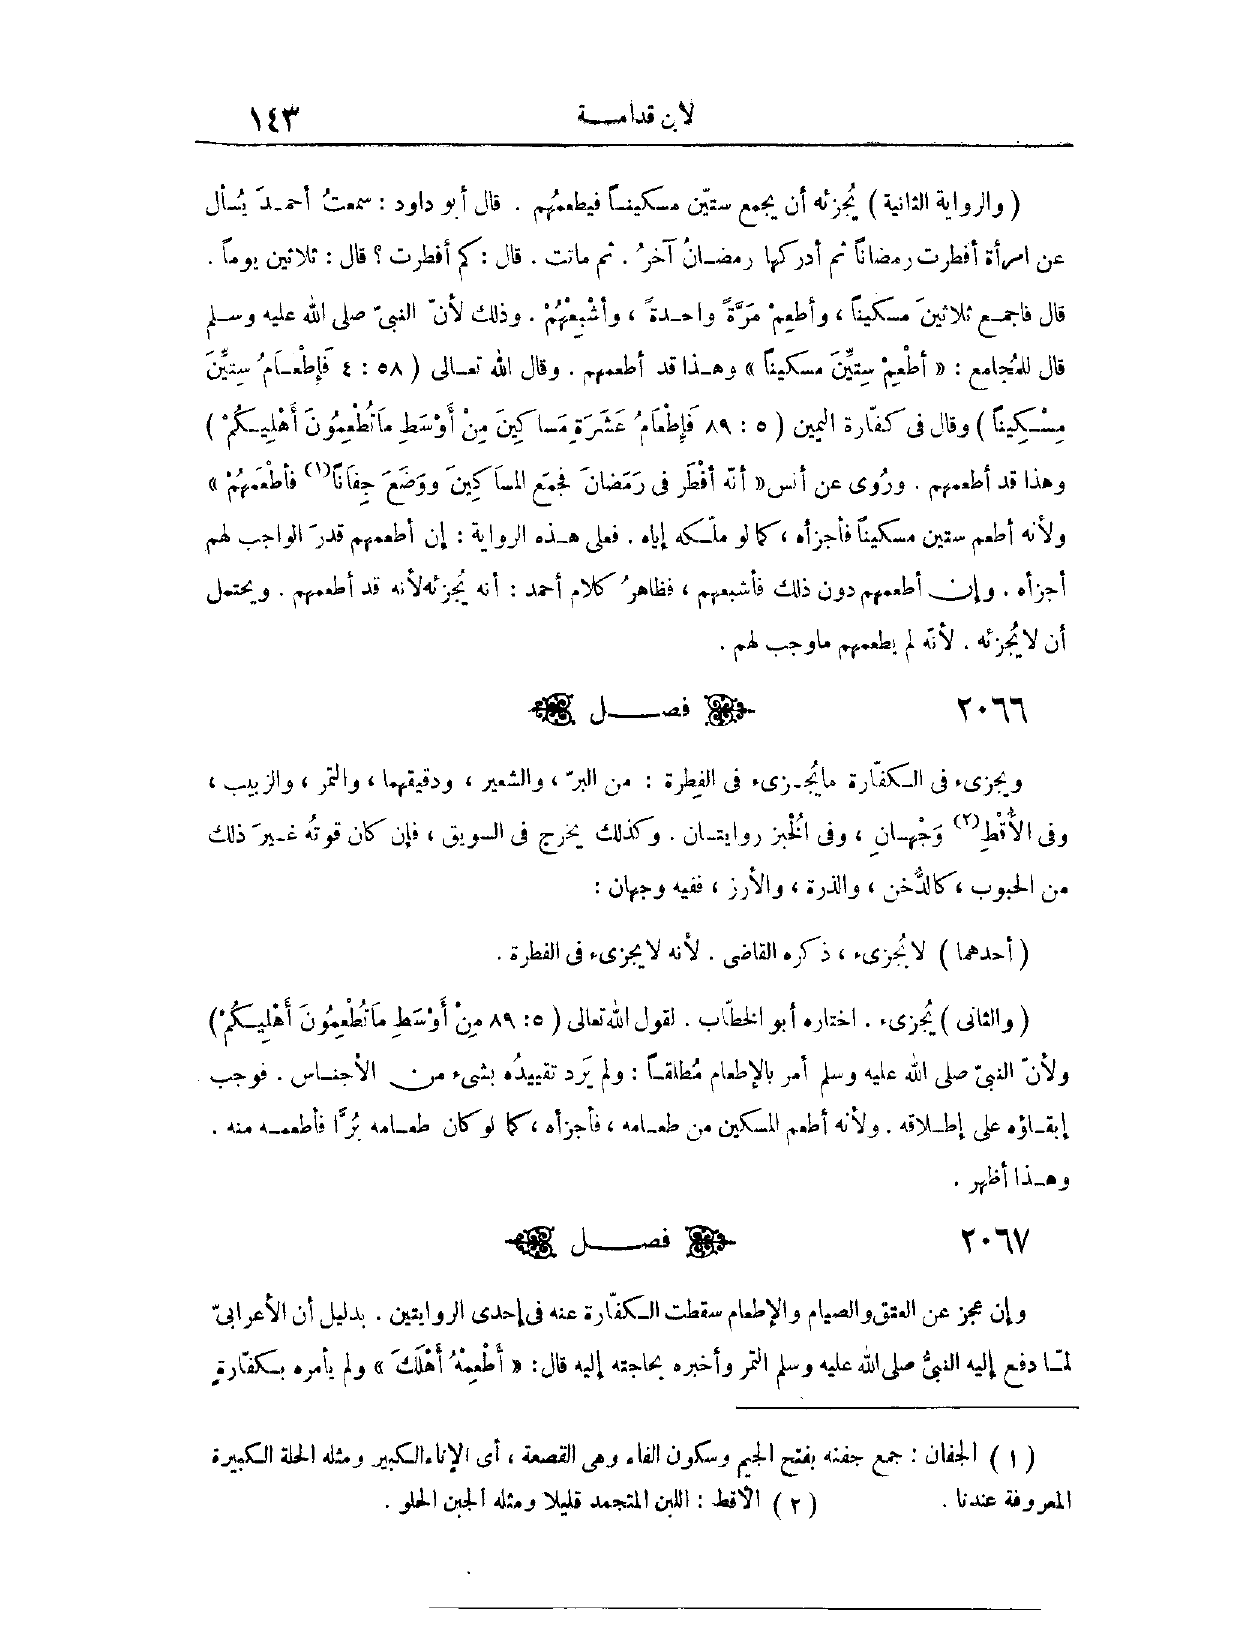 لابن قدامـــة ١٤٣
( والرواية الثانية ) يُجزئه أن يجمع ستيّن مسكينـاً فيطعمُهم . قال أبو داود : سمعتُ أحمـدَ يُسأل
عن امرأة أفطرت رمضاناً ثم أدركها رمضـانُ آخرُ . ثم ماتت . قال : كم أفطرت ؟ قال : ثلاثين يوماً .
قال فاجمـع ثلاثينَ مسكيناً ، وأطعِمْ مَرَّةً واحـدةً ، وأشْبِعْهُمْ . وذلك لأنّ النبىّ صلى الله عليه وسـلم
قال للمُجامع : « أطْعِمْ سِتِّينَ مسكيناً » وهـذا قد أطعمهم . وقال الله تعـالى ( ٥٨ : ٤ فَإِطْعَـامُ سِتِّينَ
مِسْـكِيناً ) وقال فى كفّارة اليمين ( ٥ : ٨٩ فَإِطْعَامُ عَشَرَةِ مَساكِينَ مِنْ أَوْسَطِ مَاتُطْعِمُونَ أَهْلِيـكُمْ )
وهذا قد أطعمهم . ورُوى عن أنس « أنّه أفْطَر فى رَمَضانَ فجمَع المساكِينَ ووَضَعَ جِفاناً(١) فأطْعَمَهُمْ »
ولأنه أطعم ستين مسكيناً فأجزأه ، كما لو ملّـكه إياه . فعلى هـذه الرواية : إن أطعمهم قدرَ الواجب لهم
أجزأه . وإن أطعمهم دون ذلك فأشبعهم ، فظاهرُ كلام أحمد : أنه يُجزئه لأنه قد أطعمهم . ويحتمل
أن لا يُجزئه . لأنّه لم يطعمهم ماوجب لهم .
٢٠٦٦ فصـــل
ويجزىء فى الـكفّارة مايُجـزىء فى الفِطرة : من البرّ ، والشعير ، ودقيقهما ، والتمر ، والزبيب ،
وفى الأَقْطِ(٢) وَجْهـانِ ، وفى الخُبز روايتـان . وكذلك يخرج فى السويق ، فإن كان قوتُه غـيرَ ذلك
من الحبوب ، كالدُّخن ، والذرة ، والأرز ، ففيه وجهان :
( أحدهما ) لا يُجزىء ، ذكره القاضى . لأنه لا يجزىء فى الفطرة .
( والثانى ) يُجزىء . اختاره أبو الخطّاب . لقول الله تعالى ( ٥: ٨٩ مِنْ أَوْسَطِ مَاتُطْعِمُونَ أَهْلِيـكُمْ )
ولأنّ النبىّ صلى الله عليه وسلم أمر بالإطعام مُطلقـاً : ولم يَرِد تقييدُه بشىء من الأجنـاس . فوجب
إبقـاؤه على إطـلاقه . ولأنه أطعم المسكين من طعـامه ، فأجزأه ، كما لو كان طعـامه بُرًّا فأطعمـه منه .
وهـذا أظهر .
٢٠٦٧ فصـــل
وإن عجز عن العتق والصيام والإطعام سقطت الـكفّارة عنه فى إحدى الروايتين . بدليل أن الأعرابىّ
لمّـا دفع إليه النبىُّ صلى الله عليه وسلم التمر وأخبره بحاجته إليه قال : « أَطْعِمْهُ أَهْلَكَ » ولم يأمره بـكفّارةٍ
( ١ ) الجفان : جمع جفنه بفتح الجيم وسكون الفاء وهى القصعة ، أى الإناء الـكبير ومثله الحلة الـكبيرة
المعروفة عندنا . ( ٢ ) الأقط : اللبن المتجمد قليلا ومثله الجبن الحلو .